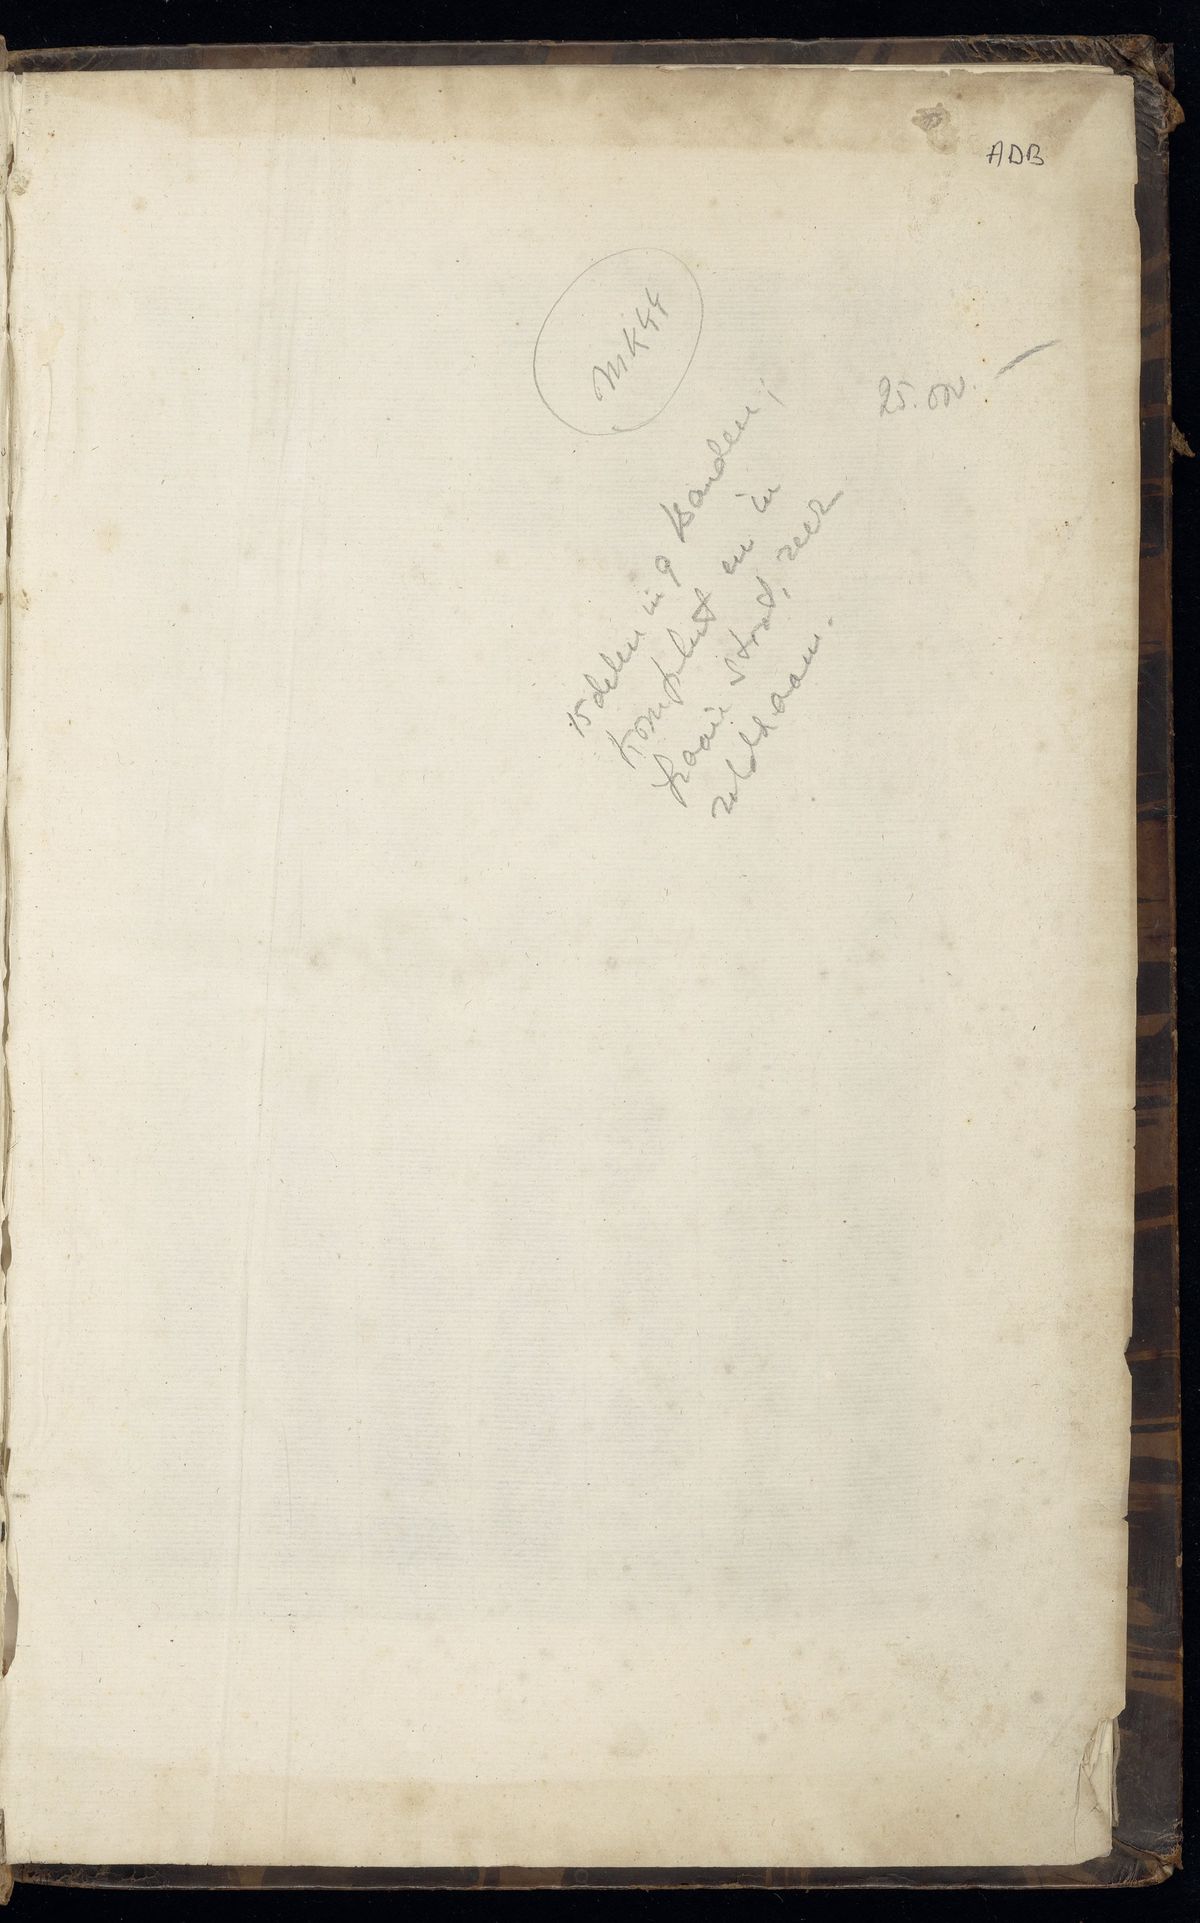 ADB
MK44
25.on. —
15 delen in 9 banden;
kompleet en in
fraaie staat, zeer
zeldzaam.